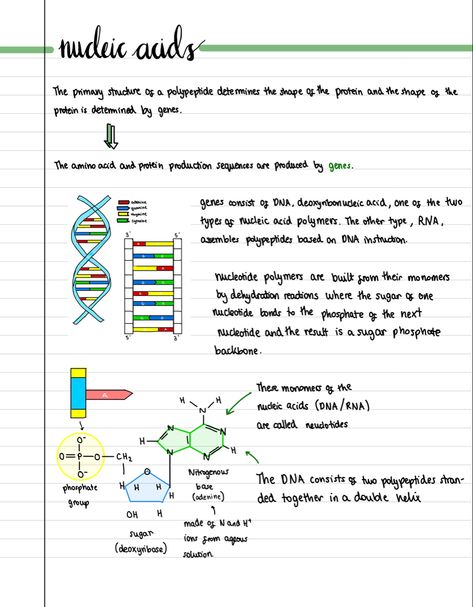 nucleic acids
The primary structure of a polypeptide determines the shape of the protein and the shape of the
protein is determined by genes.
The amino acid and protein production sequences are produced by genes.
adenine
guanine
thymine
cytosine
genes consist of DNA, deoxyribonucleic acid, one of the two
types of nucleic acid polymers. The other type, RNA,
assembles polypeptides based on DNA instruction.
3'
5'
nucleotide polymers are built from their monomers
by dehydration reactions where the sugar of one
nucleotide bonds to the phosphate of the next
nucleotide and the result is a sugar phosphate
backbone.
A
These monomers of the
nucleic acids (DNA/RNA)
are called
H H
N
N N
H H
N N
O
O=P-O-CH₂
O
phosphate
group
O
H H H H
OH H
sugar
(deoxyribose)
Nitrogenous
base
(adenine)
made of N and H⁺
ions from aqeous
solution
The DNA consists of two polypeptides stran-
ded together in a double helix